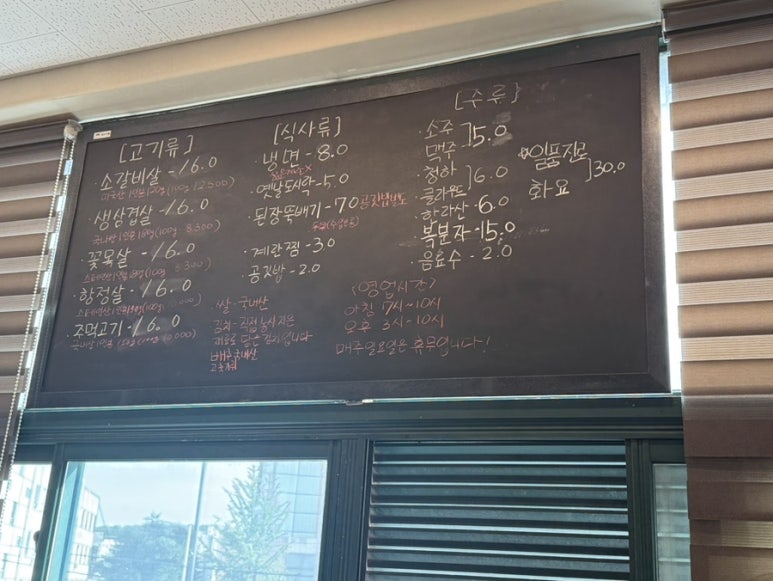 [고기류]
·소갈비살 - 16.0
미국산 1인분 120g (100g 12.500)
생삼겹살 - 16.0
국내산 1인분 (100g 8.300)
·꽃목살 - 16.0
스페인산 1인분 (100g 8.300)
·항정살 - 16.0
스페인산 1인분 (100g
·주먹고기 - 16.0
국내산 1인분
[식사류]
·냉면 - 8.0
·옛날도시락 - 5.0
·된장뚝배기 - 7.0 공깃밥별도
·계란찜 - 3.0
·공깃밥 - 2.0
·쌀 - 국내산
김치 - 직접 농사 지은
재료로 담근 김치입니다
배추 국내산
고춧가루
[수류]
·소주
맥주 ] 5.0
·청하
클라우드 ] 6.0
·한라산 - 6.0
복분자 - 15.0
·음료수 - 2.0
일품진로
화요 ] 30.0
<영업시간>
아침 7시~10시
오후 3시~10시
매주 일요일은 휴무입니다!